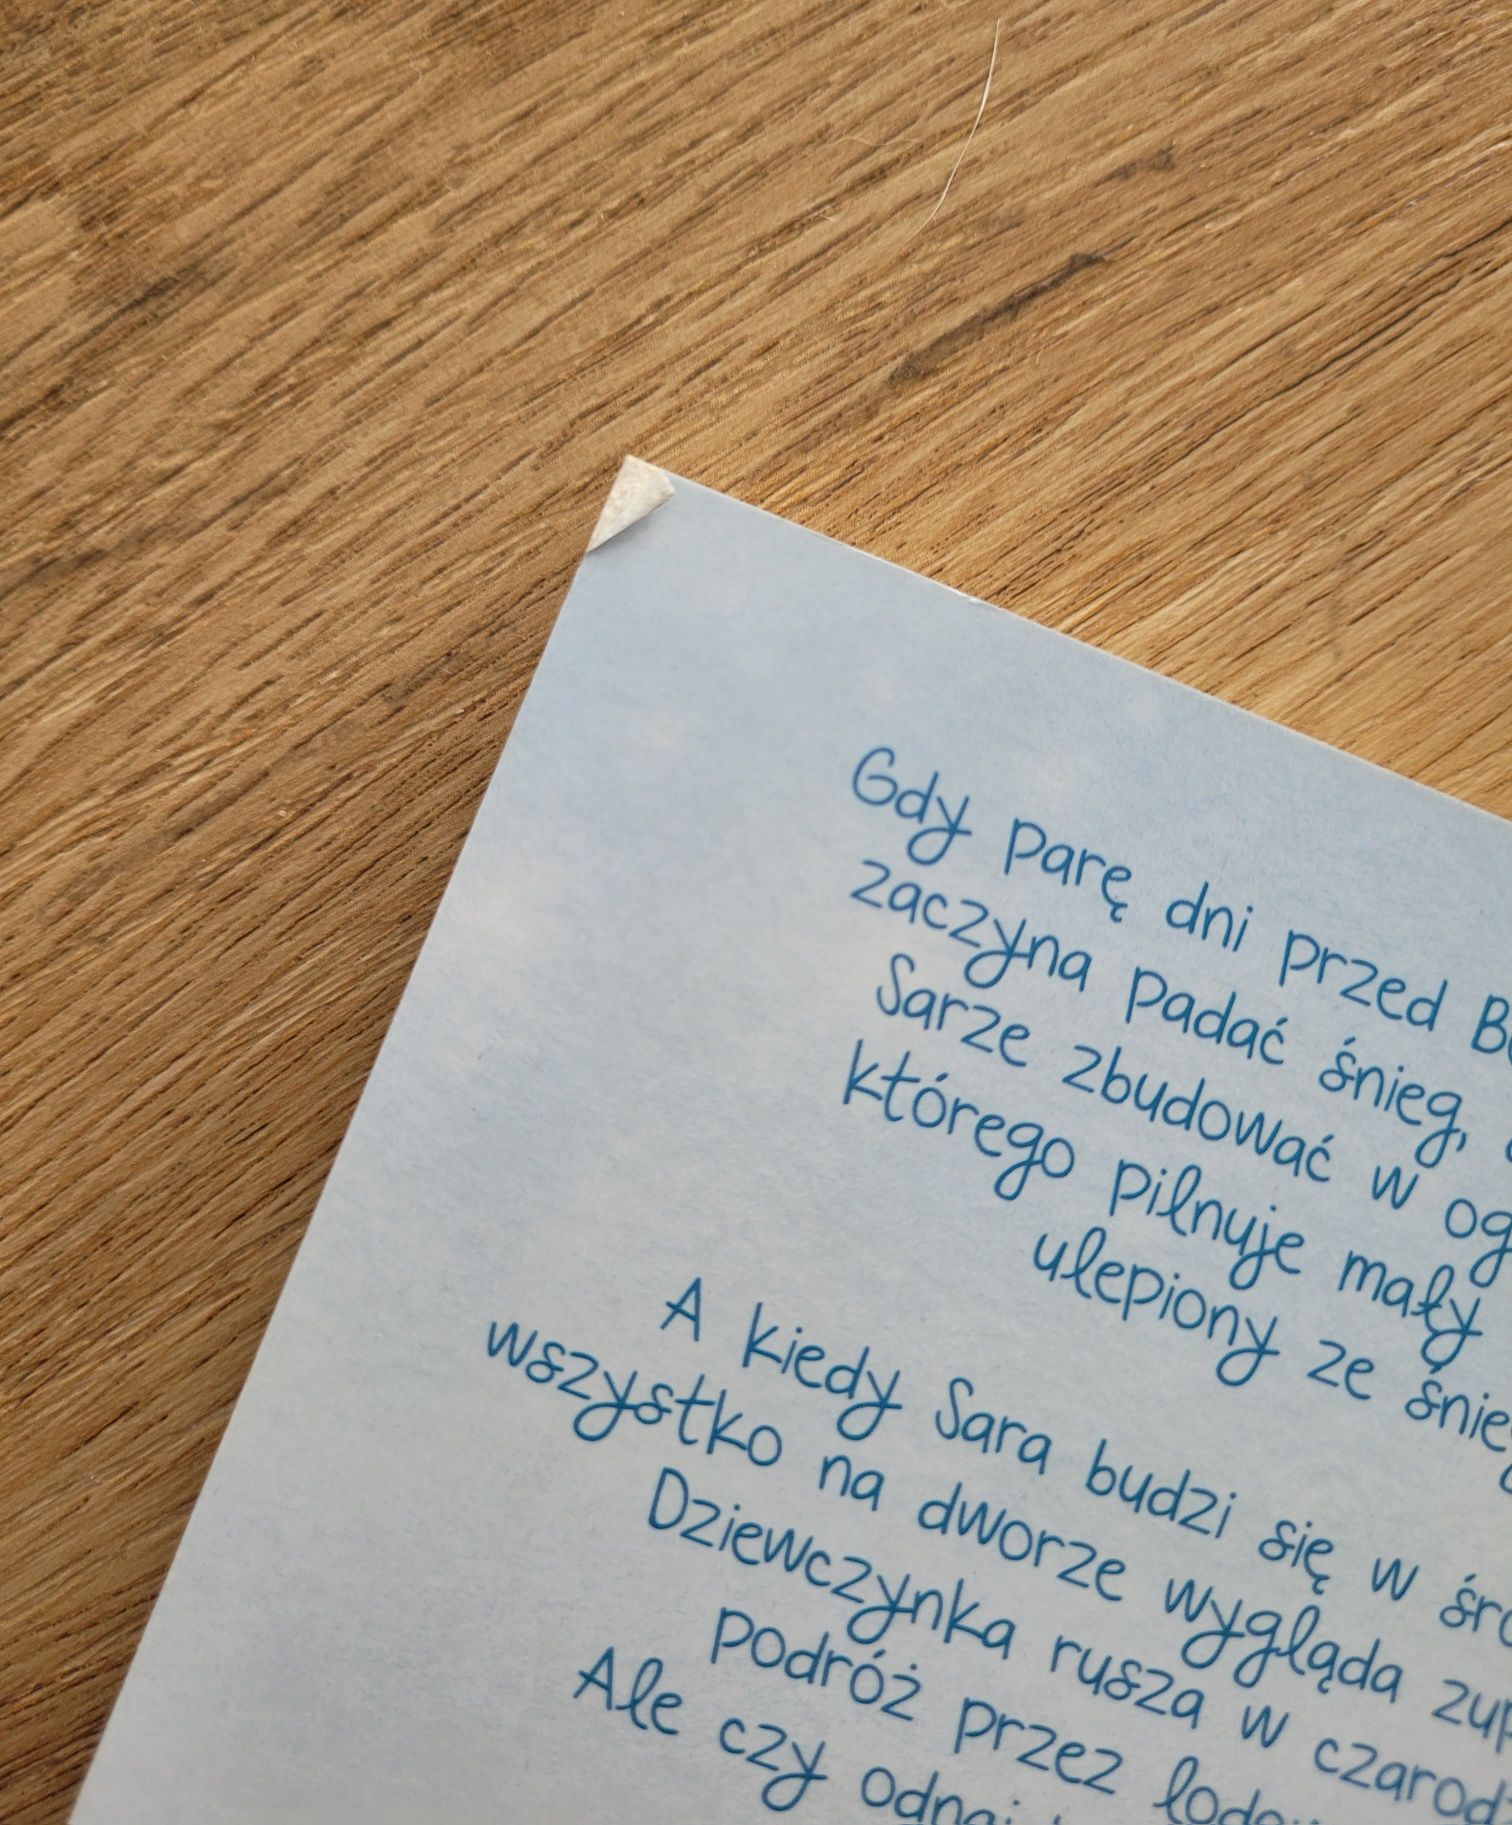 Gdy parę dni przed
zaczyna padać śnieg,
Sarze zbudować w
którego pilnuje mały
ulepiony ze
A kiedy Sara budzi się w
wszystko na dworze wygląda
Dziewczynka rusza w
podróż przez
Ale czy